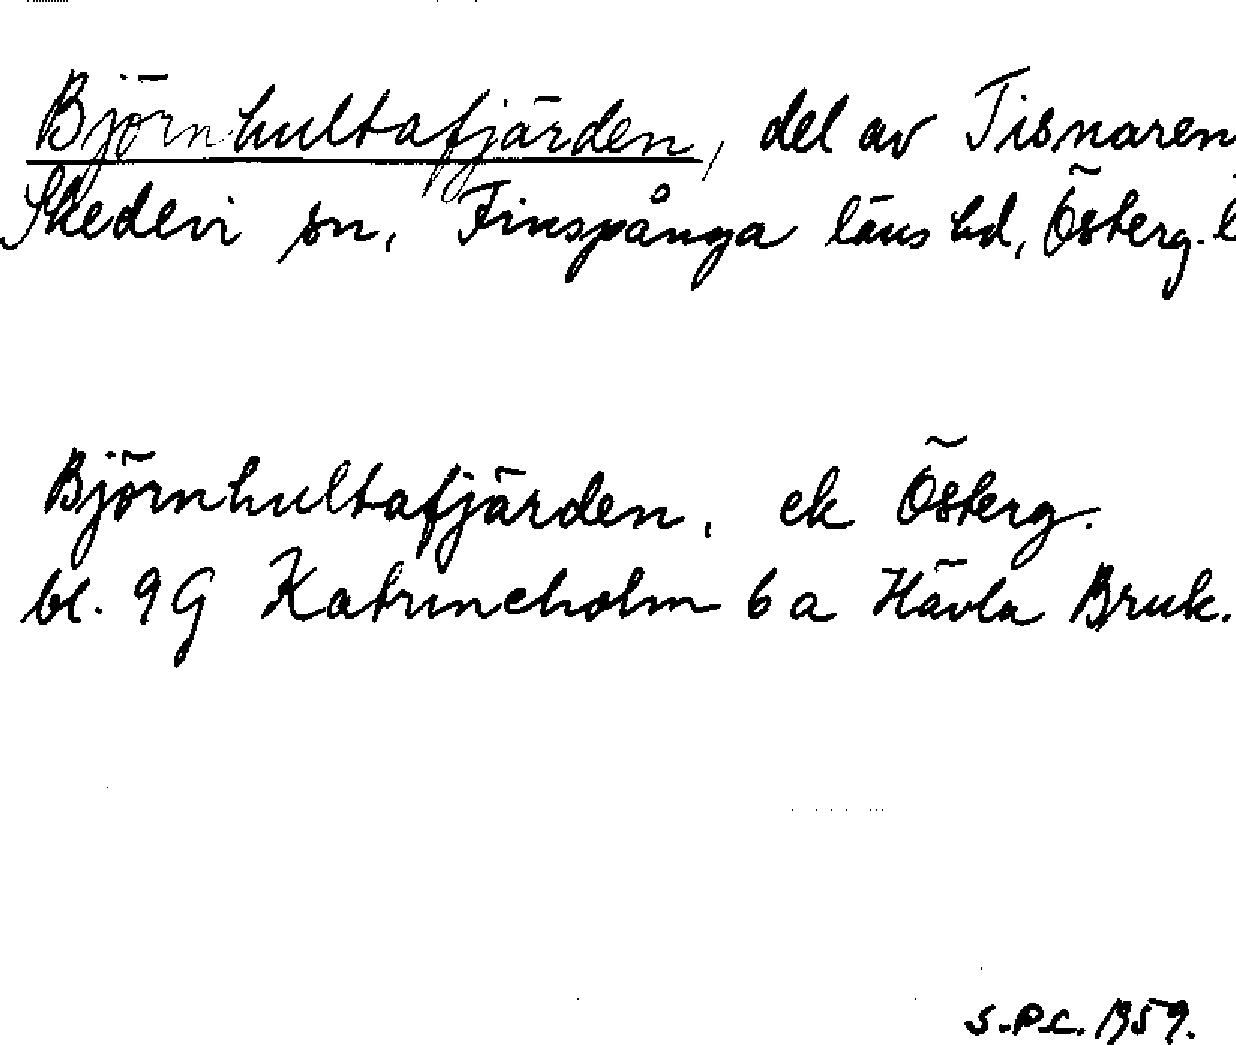 Björnhultafjärden, del av Tisnaren,
Skedevi sn, Finspånga läns hd, Österg. l
Björnhultafjärden, ek Österg.
bl. 9G Katrineholm 6a Hävla Bruk.
S.P.C. 1959.